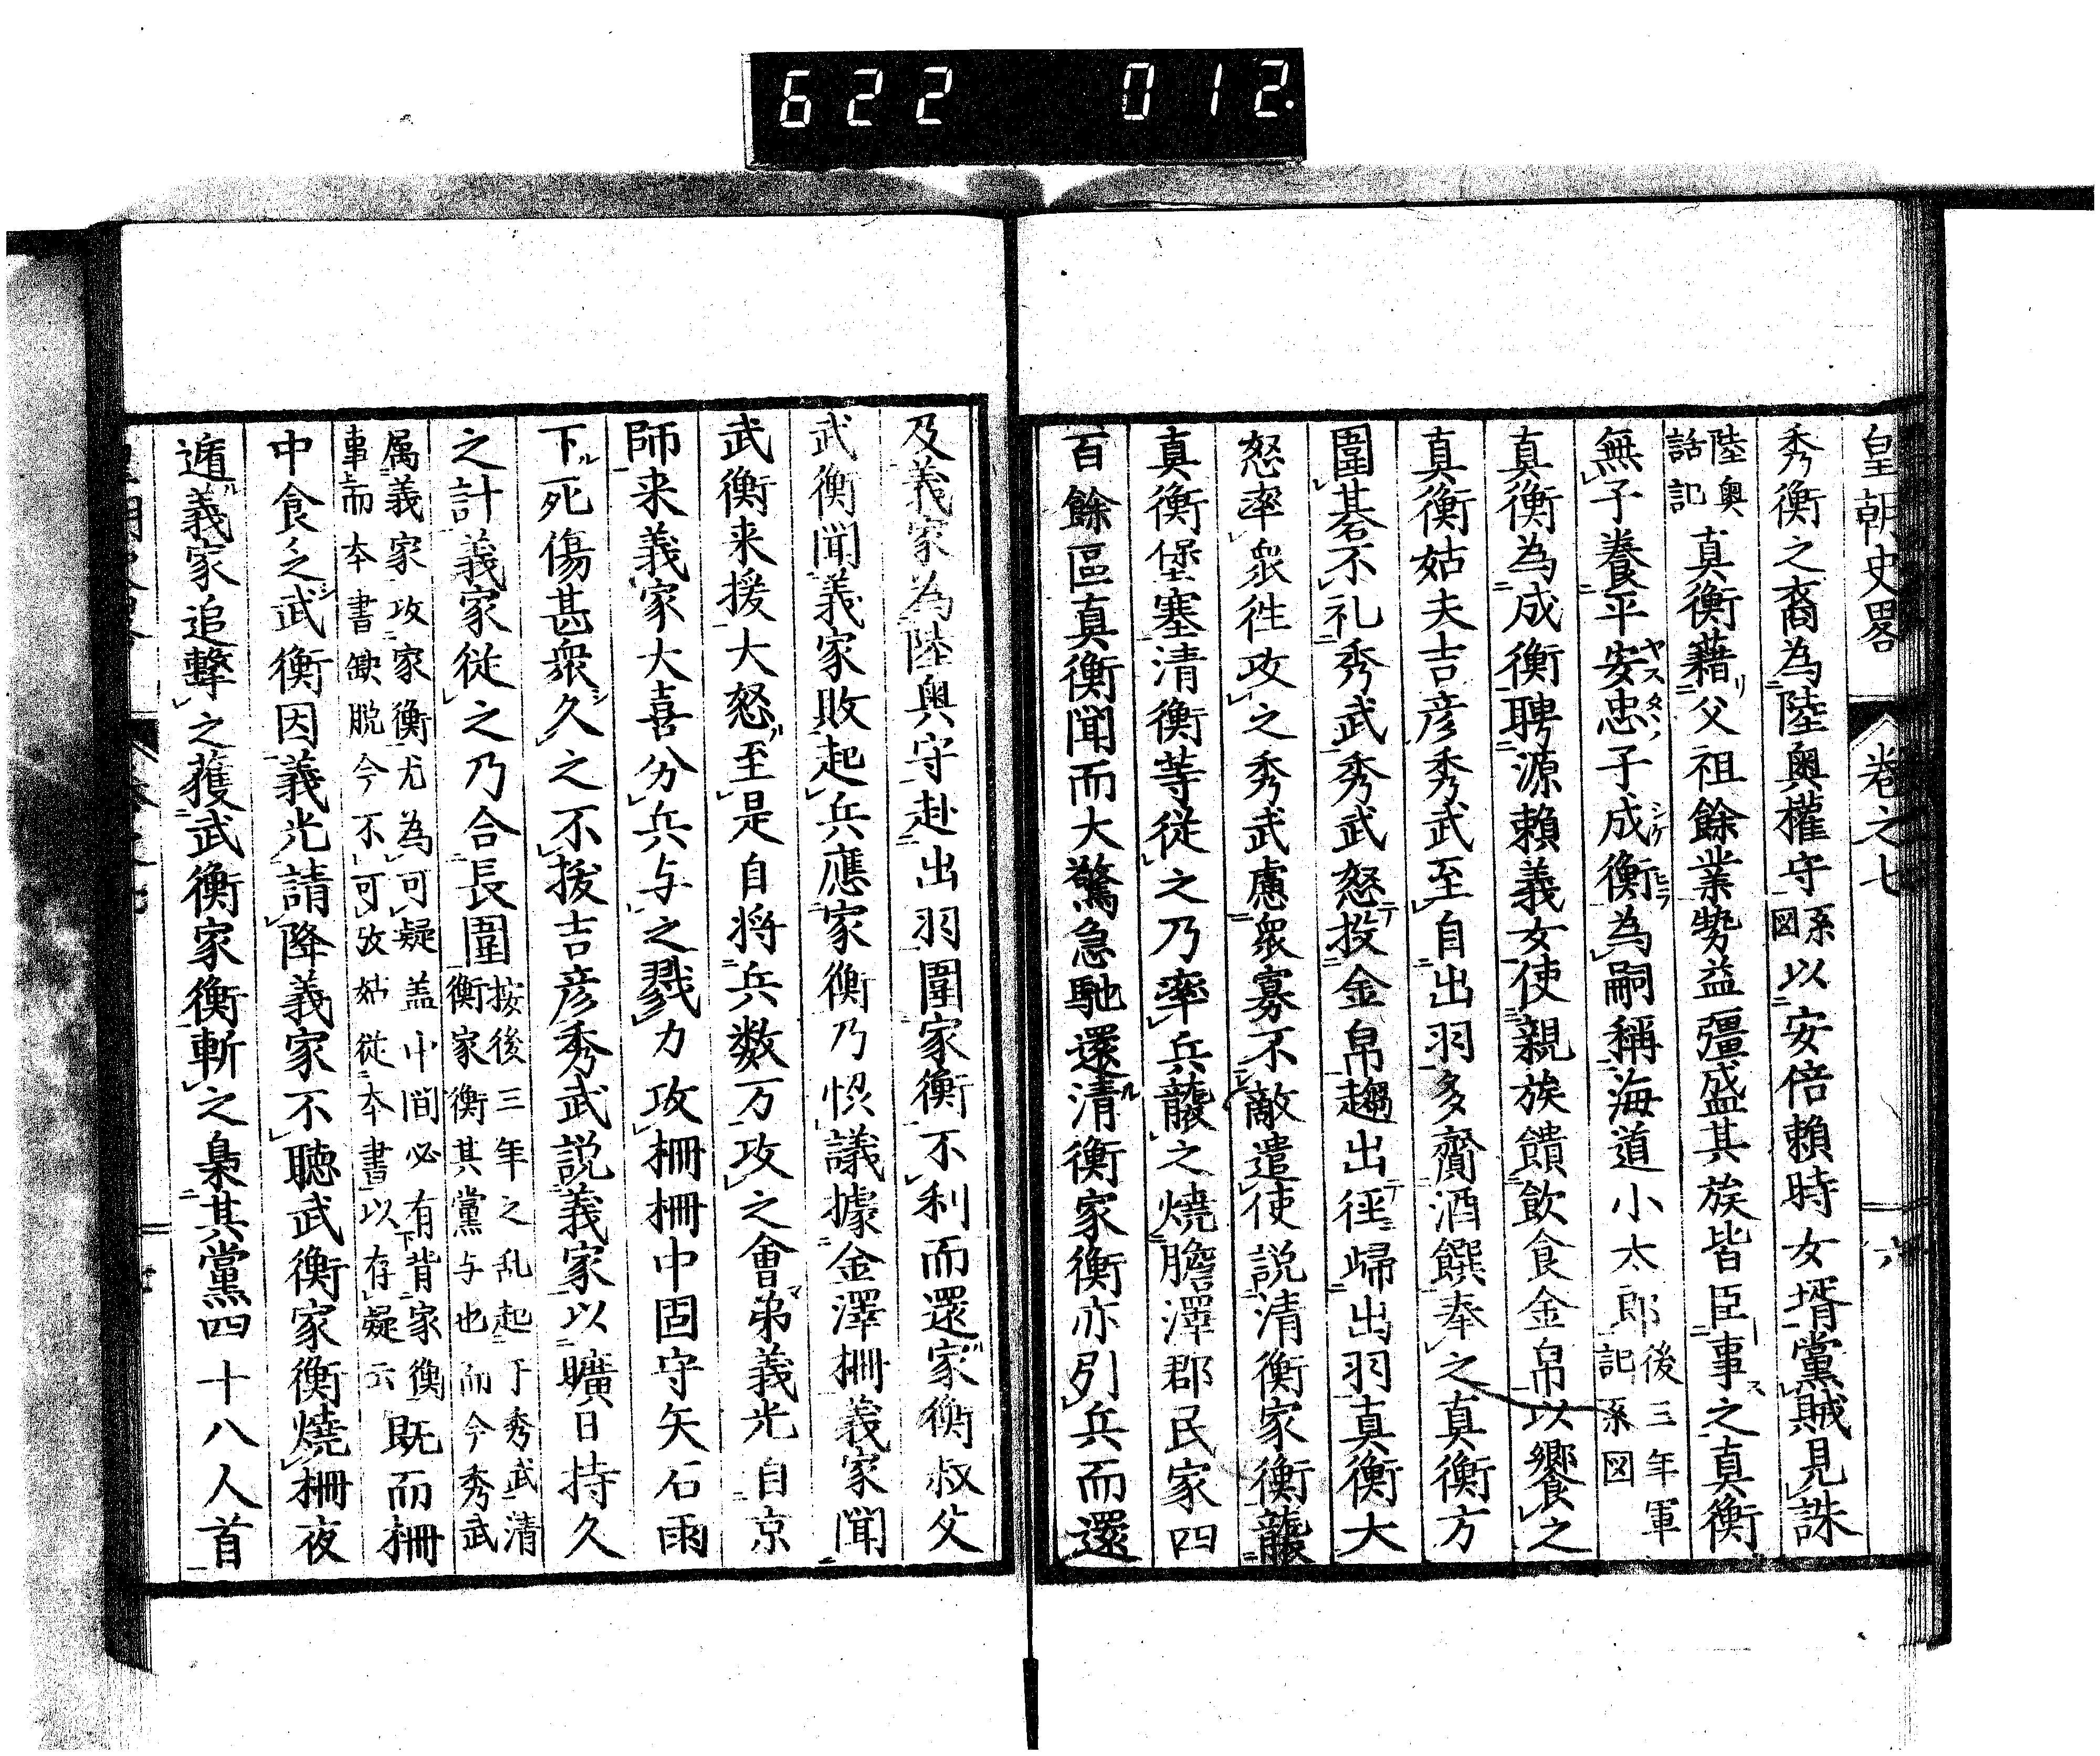 622 012.
皇朝史畧 卷之七 六
秀衡之裔為陸奥權守系図以安倍賴時女壻黨賊見誅
陸奥話記真衡藉父祖餘業勢益彊盛其族皆臣事之真衡
無子養平安忠子成衡為嗣稱海道小太郎後三年軍記系図
真衡為成衡聘源賴義女使親族饋飲食金帛以饗之
真衡姑夫吉彦秀武至自出羽多齎酒饌奉之真衡方
圍碁不礼秀武秀武怒投金帛趨出徑歸出羽真衡大
怒率衆徃攻之秀武慮衆寡不敵遣使説清衡家衡襲
真衡堡塞清衡等従之乃率兵襲之燒膽澤郡民家四
百餘區真衡聞而大驚急馳還清衡家衡亦引兵而還
及義家為陸奥守赴出羽圍家衡不利而還家衡叔父
武衡聞義家敗起兵應家衡乃恊議據金澤柵義家聞
武衡来援大怒至是自将兵数万攻之會弟義光自京
師来義家大喜分兵与之戮力攻柵柵中固守矢石雨
下死傷甚衆久之不拔吉彦秀武説義家以曠日持久
之計義家従之乃合長圍按後三年之乱起于秀武清衡家衡其黨与也而今秀武
属義家攻家衡尤為可疑盖中間必有背家衡事而本書缺脱今不可攷姑從本書以存疑云既而柵
中食乏武衡因義光請降義家不聴武衡家衡燒柵夜
遁義家追擊之獲武衡家衡斬之梟其黨四十八人首